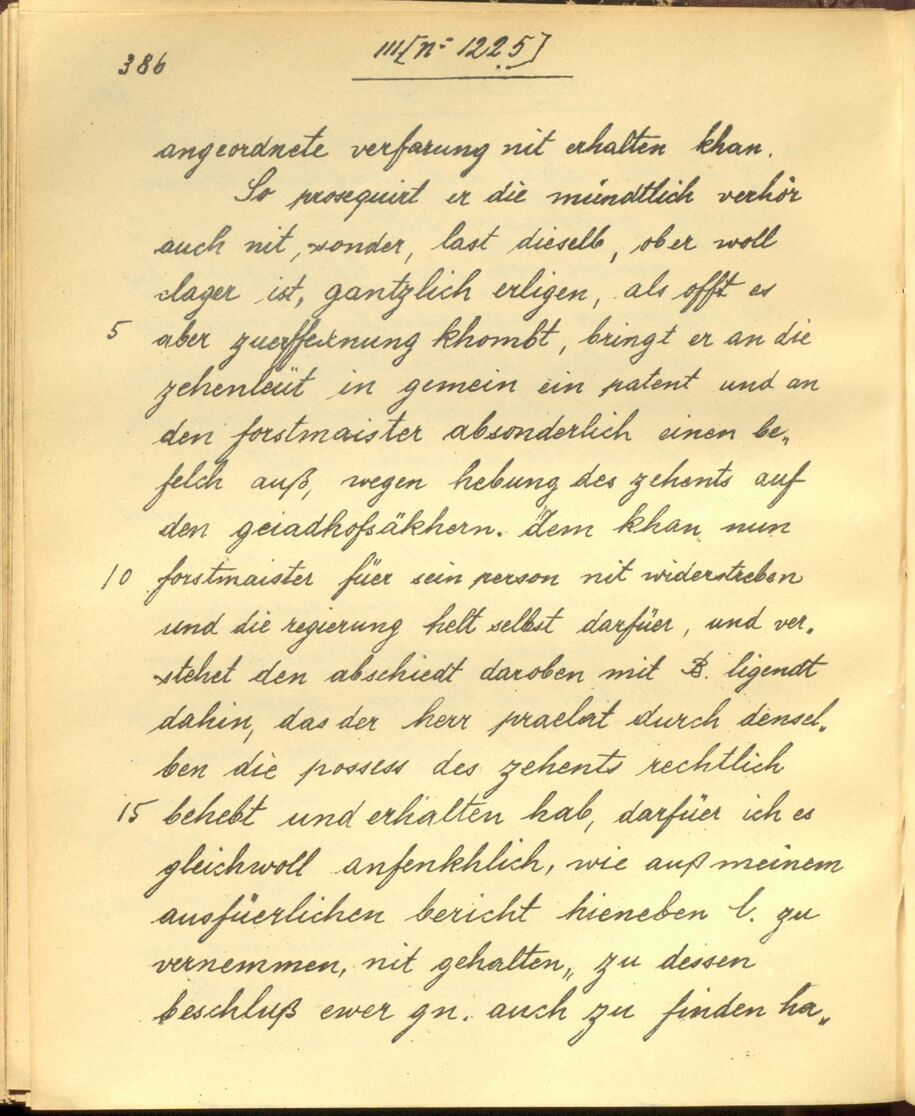 386
III [nº 1225]
angeordnete verfarung nit erhalten khan.
So prosequirt er die mündtlich verhör
auch nit, sonder, last dieselb, ob er woll
clager ist, gantzlich erligen, als offt es
5 aber zuerffexnung khombt, bringt er an die
zehenleüt in gemein ein patent und an
den forstmaister absonderlich einen be„
felch auß, wegen hebung des zehents auf
den geiadhofsäkhern. Dem khan nun
10 forstmaister füer sein person nit widerstreben
und die regierung helt selbst darfüer, und ver„
stehet den abschiedt daroben mit B. ligendt
dahin, das der herr praelat durch densel„
ben die possess des zehents rechtlich
15 behebt und erhalten hab, darfüer ich es
gleichwoll anfenkhlich, wie auß meinem
ausfüerlichen bericht hieneben C. zu
vernemmen, nit gehalten„ zu dessen
beschluß ewer gn. auch zu finden ha„